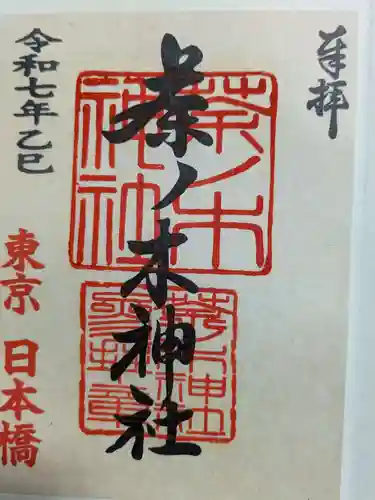 奉拝
茶ノ木神社
茶ノ木神社
令和七年乙巳
東京 日本橋